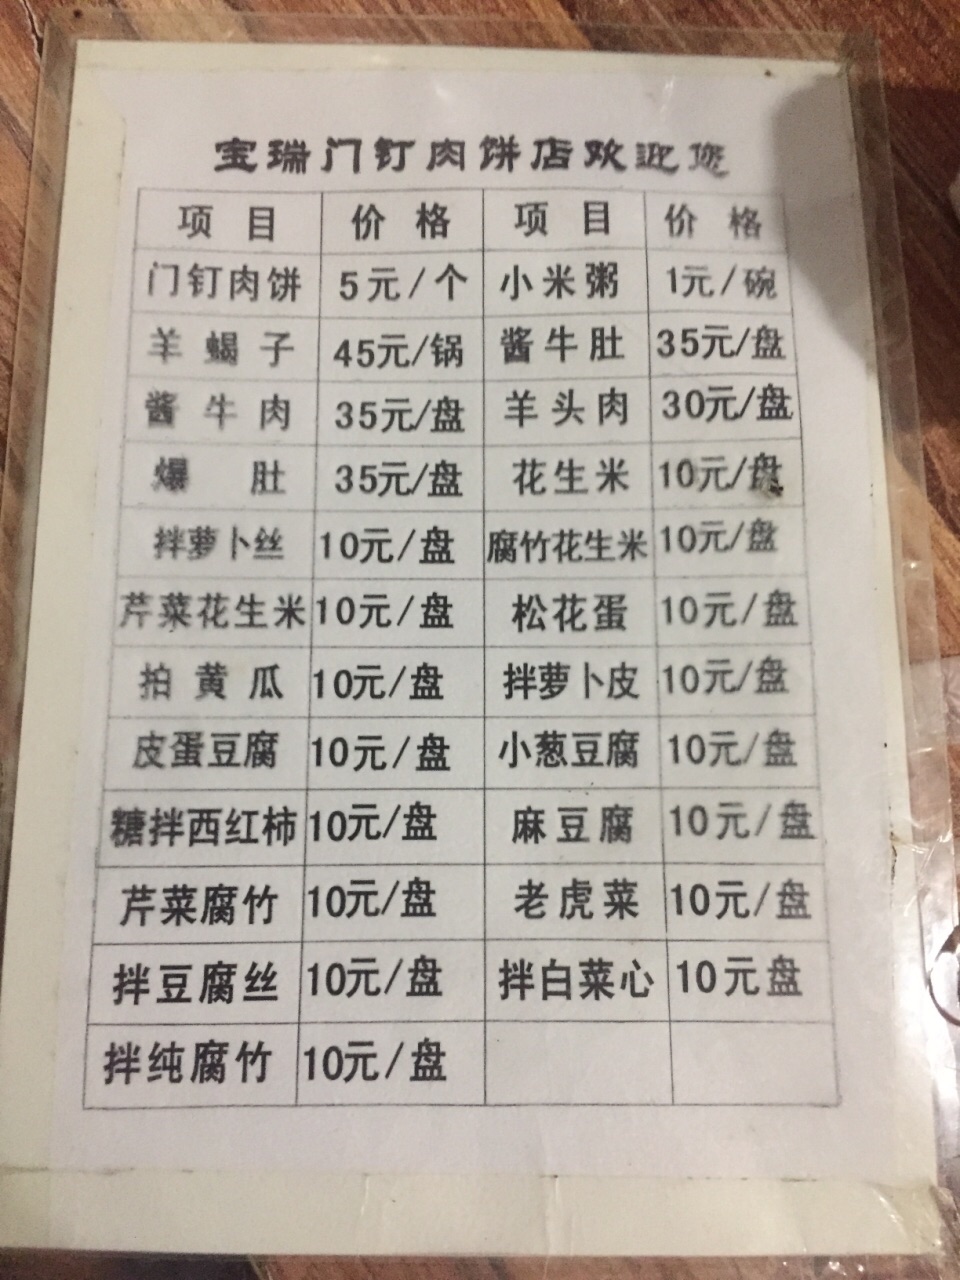 宝瑞门钉肉饼店欢迎您
项目 价格 项目 价格
门钉肉饼 5元/个 小米粥 1元/碗
羊蝎子 45元/锅 酱牛肚 35元/盘
酱牛肉 35元/盘 羊头肉 30元/盘
爆肚 35元/盘 花生米 10元/盘
拌萝卜丝 10元/盘 腐竹花生米 10元/盘
芹菜花生米 10元/盘 松花蛋 10元/盘
拍黄瓜 10元/盘 拌萝卜皮 10元/盘
皮蛋豆腐 10元/盘 小葱豆腐 10元/盘
糖拌西红柿 10元/盘 麻豆腐 10元/盘
芹菜腐竹 10元/盘 老虎菜 10元/盘
拌豆腐丝 10元/盘 拌白菜心 10元盘
拌纯腐竹 10元/盘